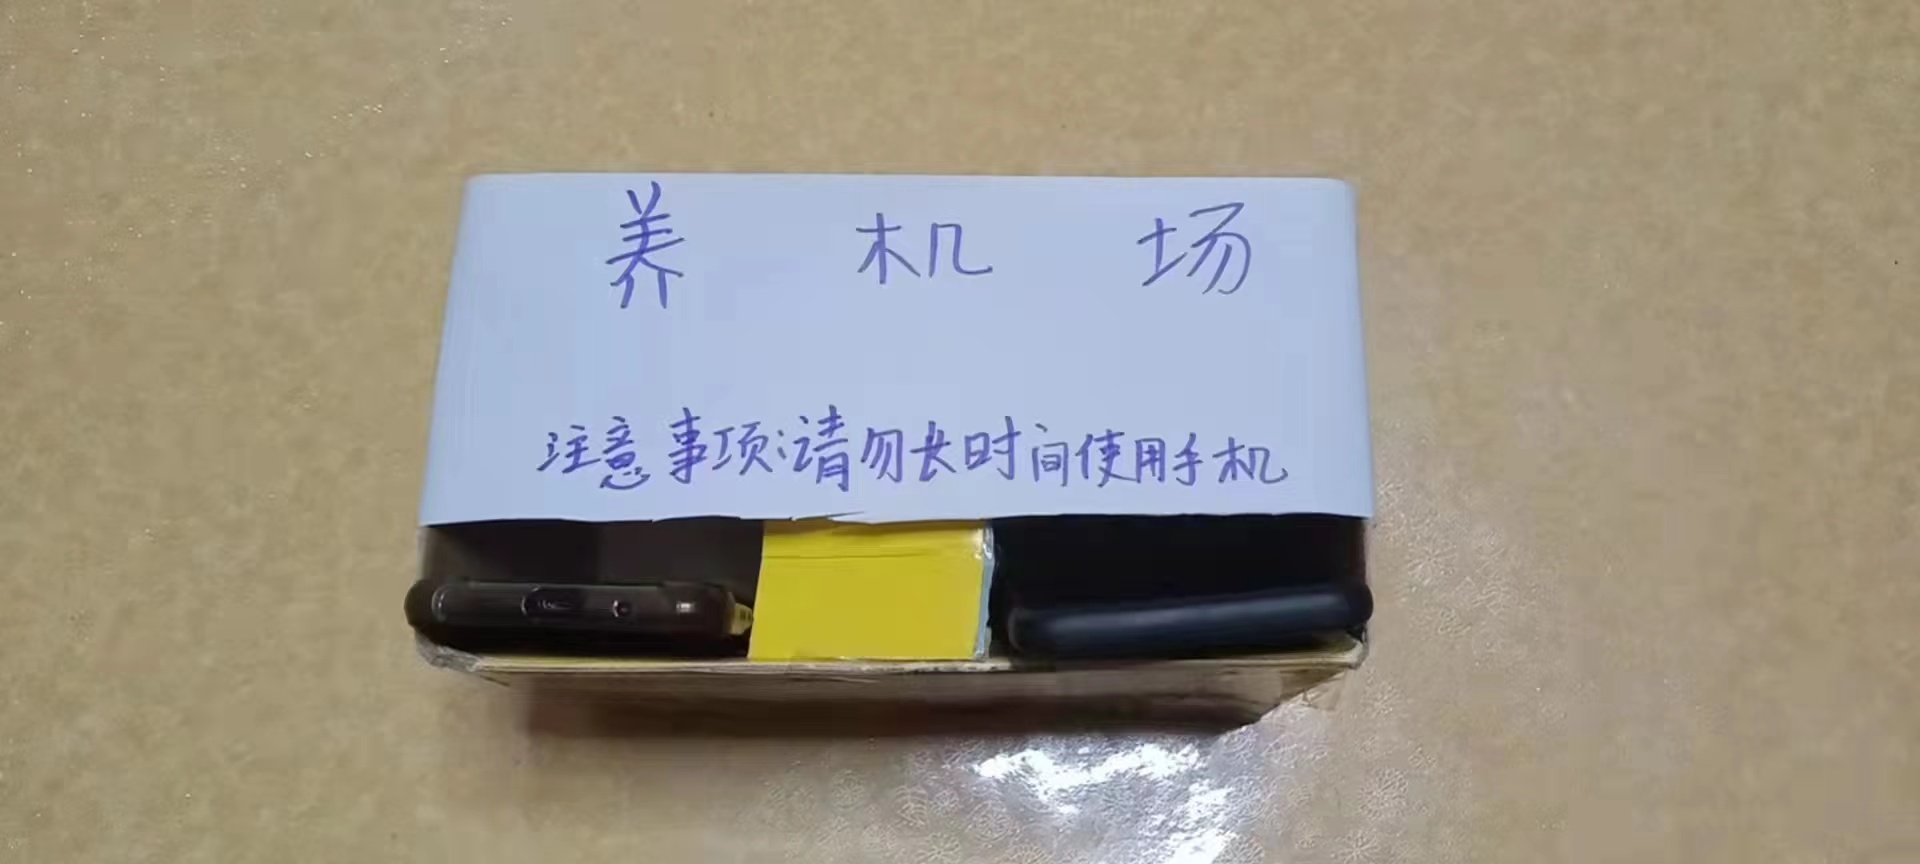 养机场
注意事项:请勿长时间使用手机